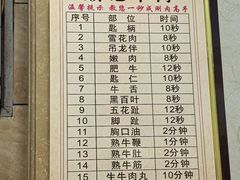 温馨提示 教您一秒成涮肉高手
序号 部位 时间
1 匙柄 10秒
2 雪花肉 8秒
3 吊龙伴 10秒
4 嫩肉 8秒
5 肥牛 12秒
6 匙仁 10秒
7 牛舌 8秒
8 黑百叶 8秒
9 五花趾 12秒
10 脚趾 12秒
11 胸口油 2分钟
12 熟牛鞭 1分钟
13 熟牛肚 1分钟
14 熟牛筋 2分钟
15 生牛肉丸 10分钟